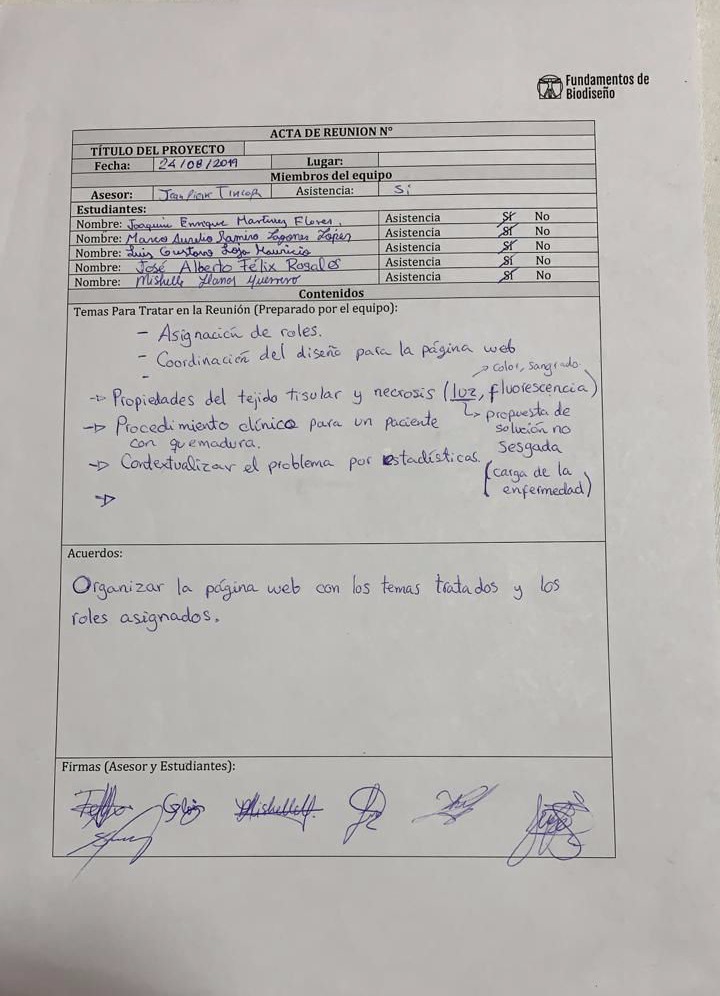 Fundamentos de
Biodiseño
ACTA DE REUNION N°
TÍTULO DEL PROYECTO
Fecha: 24/08/2019 Lugar:
Miembros del equipo
Asesor: Asistencia: Si
Estudiantes:
Nombre: Joaquin Enrique Martinez Flores. Asistencia Sí No
Nombre: Marco Aurelio Ramiro Lagones López Asistencia Sí No
Nombre: Luis Gustavo Loja Mauricio Asistencia Sí No
Nombre: José Alberto Félix Rosales Asistencia Sí No
Nombre: Mishelle Llanos Guerrero Asistencia Sí No
Contenidos
Temas Para Tratar en la Reunión (Preparado por el equipo):
- Asignación de roles.
- Coordinación del diseño para la página web
-
→ color, sangrado
→ Propiedades del tejido tisular y necrosis (luz, fluorescencia)
↳ propuesta de
solución no
sesgada
→ Procedimiento clínico para un paciente
con quemadura.
→ Contextualizar el problema por estadísticas.
(carga de la
enfermedad)
→
Acuerdos:
Organizar la página web con los temas tratados y los
roles asignados.
Firmas (Asesor y Estudiantes):